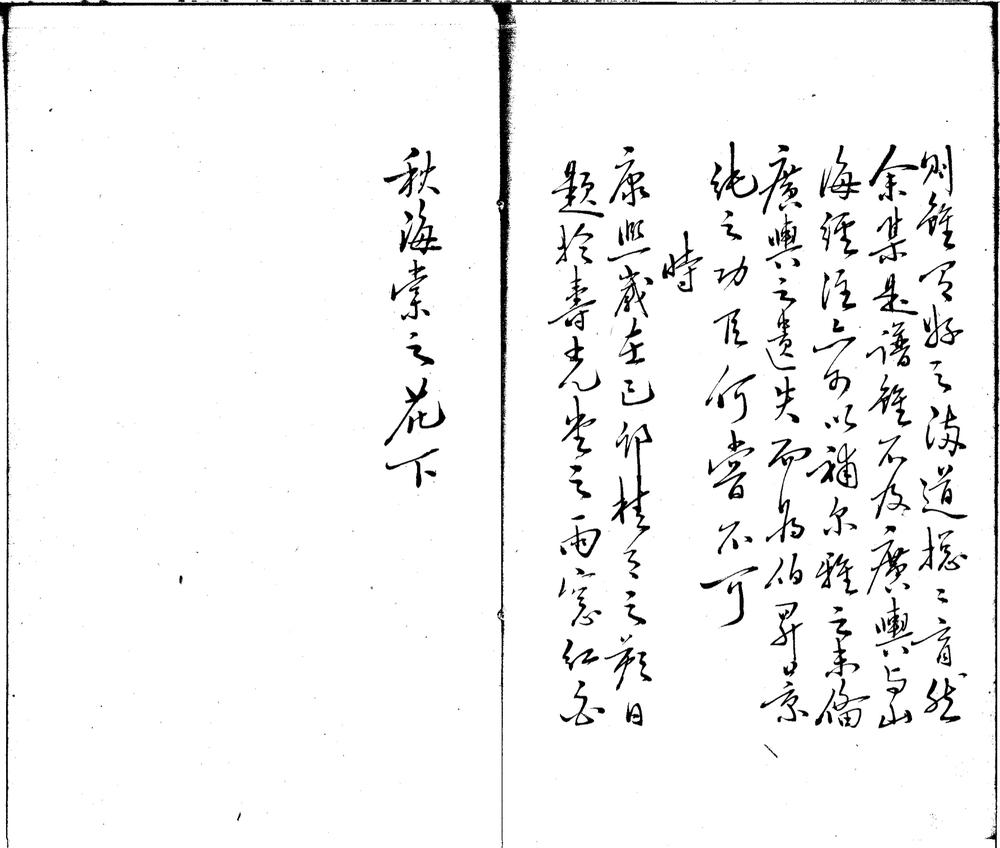 則雖有好之海道揔之盲然
余集是譜雖不及廣輿與山
海經注亦可以補尔雅之未備
廣輿之遺失而為伯昇日景
純之功臣何嘗不可
時
康熙歲在己卯桂月之朔日
題於壽光堂之雨窓紅白
秋海棠之花下